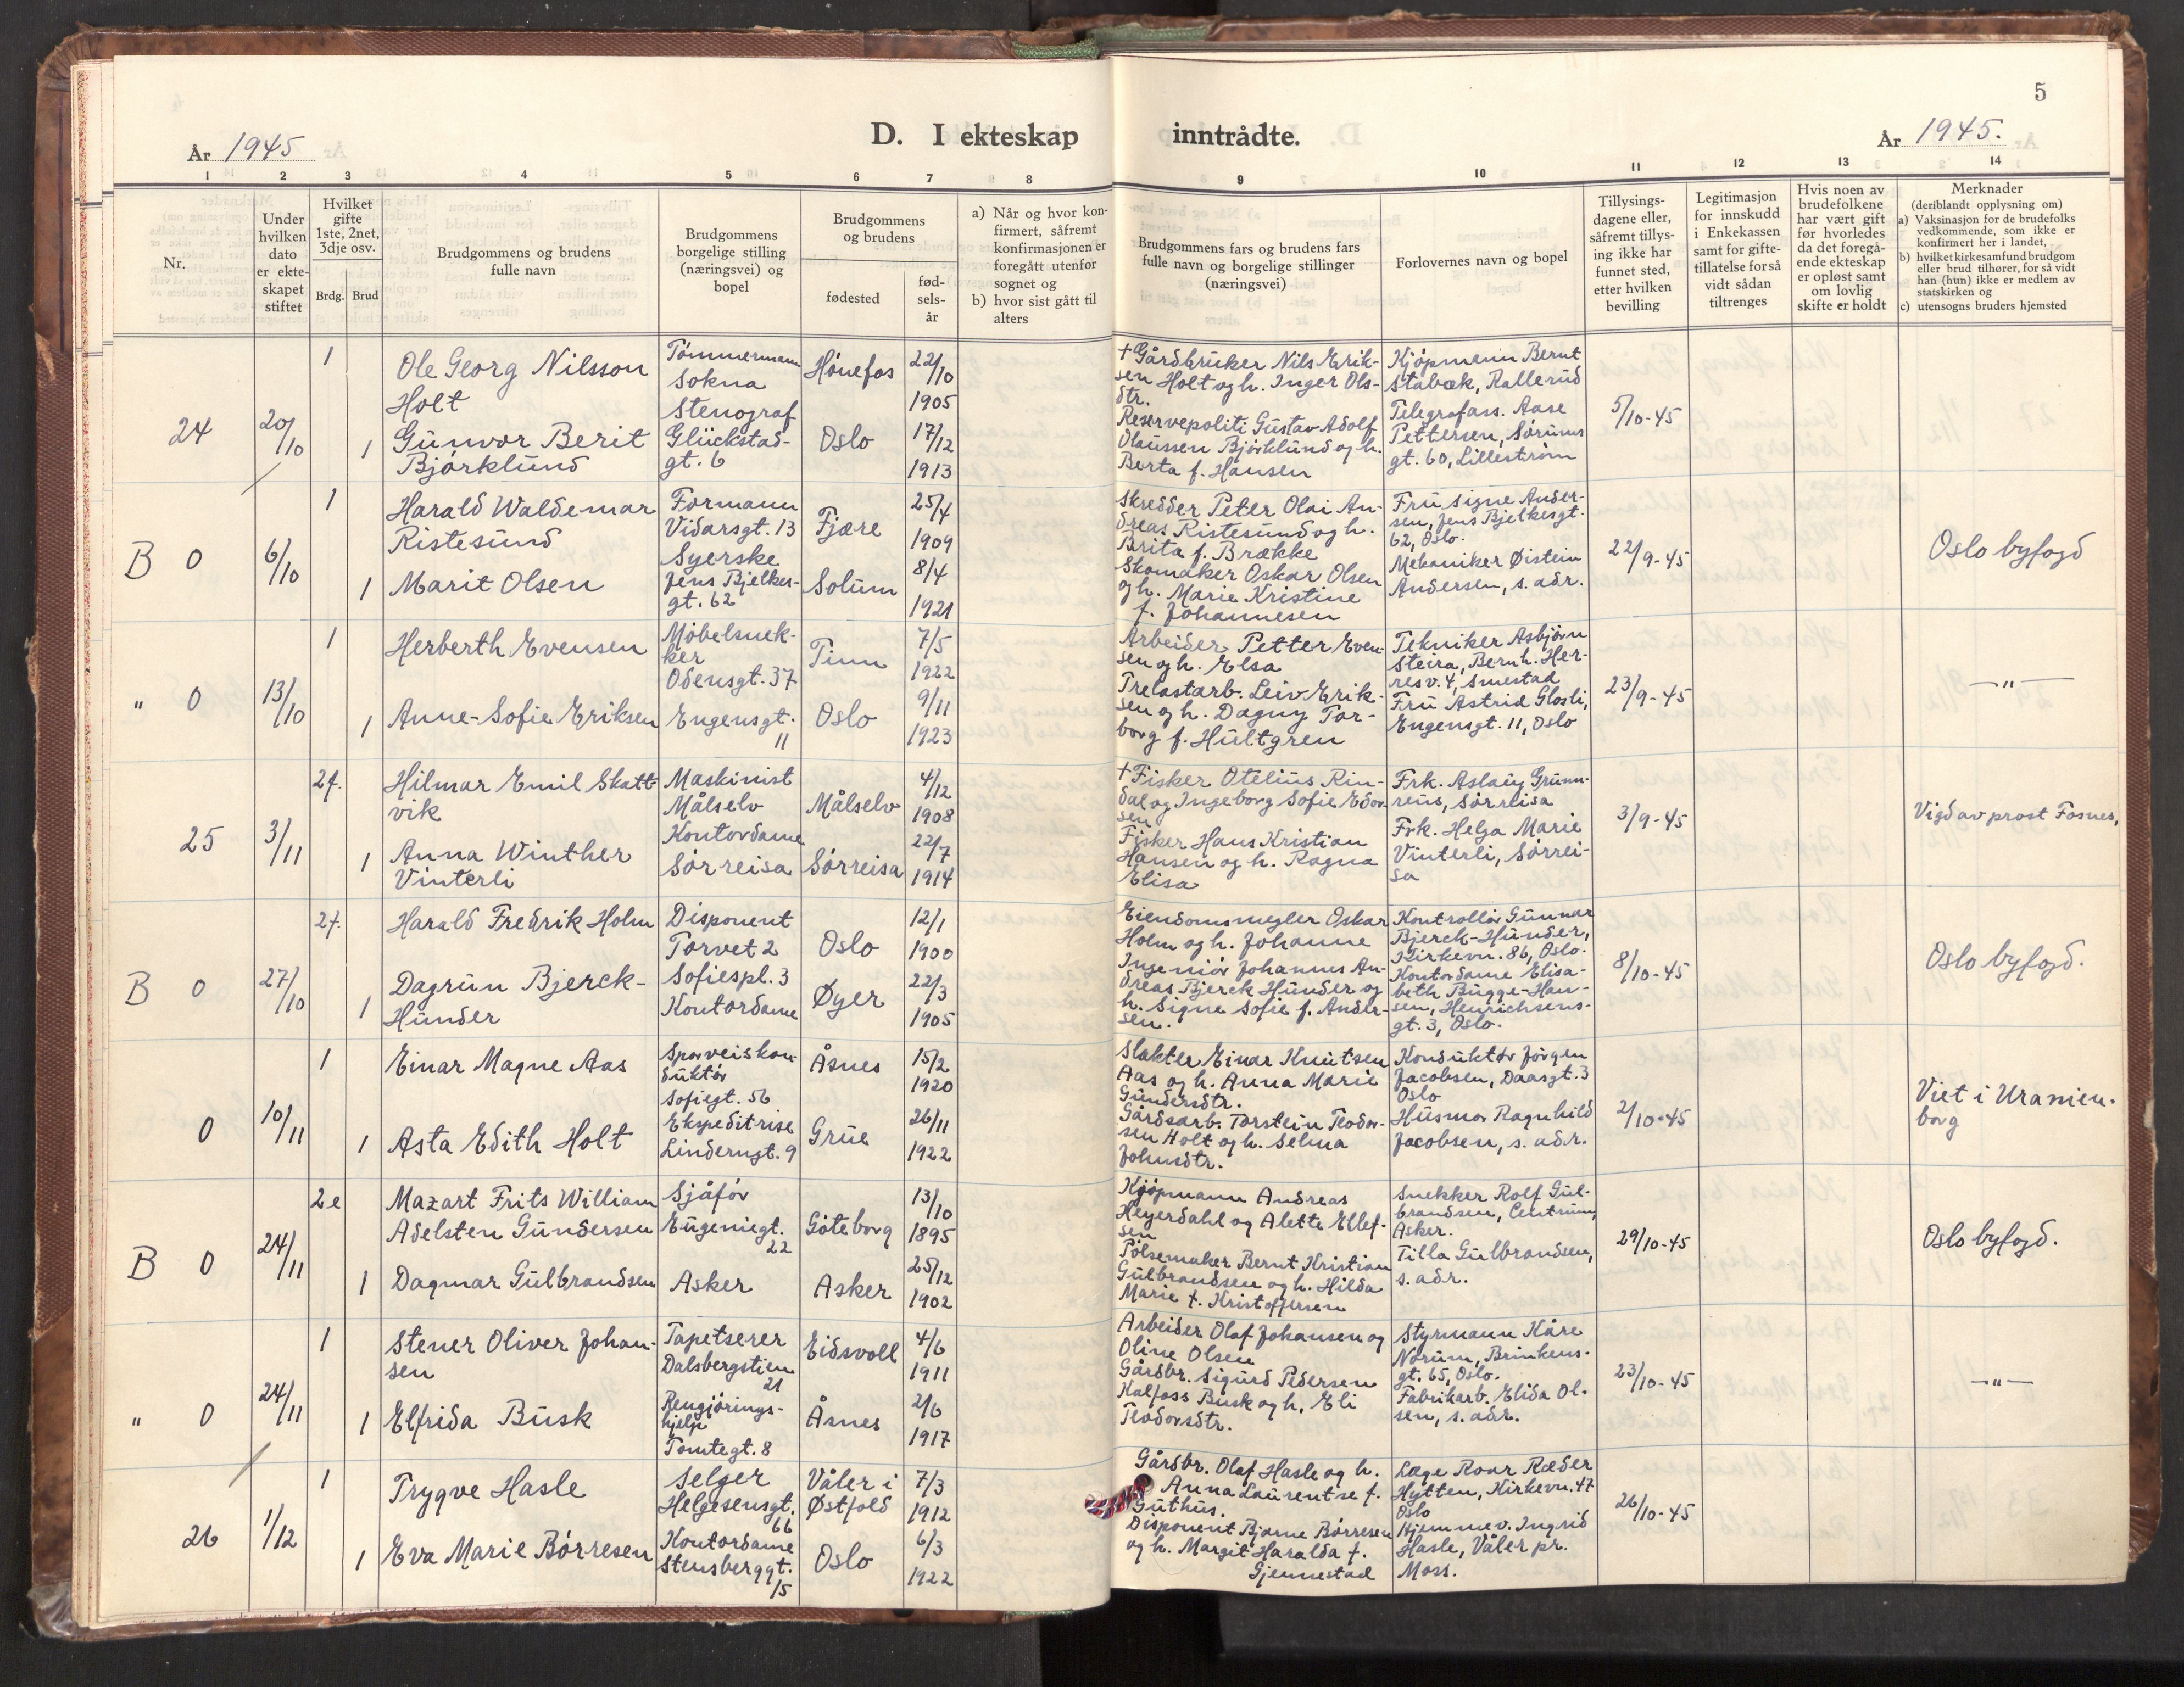 5
År 1945
D. I ekteskap inntrådte.
År 1945.
1 2 3 4 5 6 7 8 9 10 11 12 13 14
Nr.
Under hvilken dato er ekteskapet stiftet
Hvilket gifte 1ste, 2net, 3dje osv.
Brdg. Brud
Brudgommens og brudens fulle navn
Brudgommens borgelige stilling (næringsvei) og bopel
Brudgommens og brudens
fødested
fødselsår
a) Når og hvor konfirmert, såfremt konfirmasjonen er foregått utenfor sognet og
b) hvor sist gått til alters
Brudgommens fars og brudens fars fulle navn og borgelige stillinger (næringsvei)
Forlovernes navn og bopel
Tillysingsdagene eller, såfremt tillysing ikke har funnet sted, etter hvilken bevilling
Legitimasjon for innskudd i Enkekassen samt for giftetillatelse forså vidt sådan tiltrenges
Hvis noen av brudefolkene har vært gift før hvorledes da det foregående ekteskap er opløst samt om lovlig skifte er holdt
Merknader
(deriblandt opplysning om)
a) Vaksinasjon for de brudefolks vedkommende, som ikke er konfirmert her i landet,
b) hvilket kirkesamfund brudgom eller brud tilhører, for så vidt han (hun) ikke er medlem av statskirken og
c) utensogns bruders hjemsted
24
20/10
1
Ole Georg Nilsson
Holt
Tømmermann
Sokna
Hønefos
22/10
1905
1
Gunvor Berit
Bjørklund
Stenograf
Glückstad-
gt. 6
Oslo
17/12
1913
† Gårdbruker Nils Erik-
sen Holt og h. Inger Ols-
dtr.
Reservepoliti Gustav Adolf
Olaussen Bjørklund og h.
Berta f. Hansen
Kjøpmann Bernt
Stabæk, Rallerud
Telegrafass. Aase
Pettersen, Sørums
gt. 60, Lillestrøm
5/10-45
B 0
6/10
1
Harald Waldemar
Ristesund
Formann
Vidarsgt. 13
Fjære
25/4
1909
1
Marit Olsen
Syerske
Jens Bjelkes-
gt. 62
Solum
8/4
1921
Skredder Peter Olai An-
dreas Ristesund og h.
Brita f. Brække
Skomaker Oskar Olsen
og h. Marie Kristine
f. Johannesen
Fru Signe Ander-
sen, Jens Bjelkesgt.
62, Oslo.
Mekaniker Øistein
Andersen, s. adr.
22/9-45
Oslo byfogd
" 0
13/10
1
Herberth Evensen
Møbelsnek-
ker
Odensgt. 37
Tinn
7/5
1922
1
Anne-Sofie Eriksen
Engensgt.
11
Oslo
9/11
1923
Arbeider Petter Even-
sen og h. Elsa
Trelastarb. Leiv Erik-
sen og h. Dagny Tor-
borg f. Hultgren
Tekniker Asbjørn
Steira, Bernh. Her-
resv. 4, Smestad
Fru Astrid Glosli,
Engensgt. 11, Oslo
23/9-45
— " —
25
3/11
2f.
Hilmar Emil Skatt-
vik
Maskinist
Målselv
Målselv
4/12
1908
1
Anna Winther
Vinterli
Kontordame
Sørreisa
Sørreisa
22/7
1914
† Fisker Otelius Rin-
dal og Ingeborg Sofie Edor
sen
Fisker Hans Kristian
Hansen og h. Ragna
Elisa
Frk. Aslaug Grunn-
reus, Sørreisa
Frk. Helga Marie
Vinterli, Sørrei-
sa
3/9-45
Vigd av prost Fosnes,
B 0
27/10
2f.
Harald Fredrik Holm
Disponent
Torvet 2
Oslo
12/1
1900
1
Dagrun Bjerck-
Hunder
Sofiespl. 3
Kontordame
Øyer
22/3
1905
Eiendomsmegler Oskar
Holm og h. Johanne
Ingeniør Johannes An-
dreas Bjerck Hunder og
h. Signe Sofie f. Ander-
sen.
Kontrollør Gunnar
Bjerck-Hunder,
Kirkevn. 86, Oslo.
Kontordame Elisa-
beth Bugge-Han-
sen, Henrichsens-
gt. 3, Oslo.
8/10-45
Oslo byfogd.
0
10/11
1
Einar Magne Aas
Sporveiskon-
duktør
Sofiegt. 56
Åsnes
15/2
1920
1
Asta Edith Holt
Ekspeditrise
Linderngt. 9
Grue
26/11
1922
Slakter Einar Knutsen
Aas og h. Anna Marie
Gundersdtr.
Gårdsarb. Torstein Teodor-
sen Holt og h. Selma
Johnsdtr.
Konduktør Jørgen
Jacobsen, Daasgt. 3
Oslo
Husmor Ragnhild
Jacobsen, s. adr.
2/10-45
Viet i Uranien-
borg
B 0
24/11
2e
Mazart Frits William
Adelsten Gundersen
Sjåfør
Eugeniegt.
22
Göteborg
13/10
1895
1
Dagmar Gulbrandsen
Asker
Asker
25/12
1902
Kjøpmann Andreas
Heyerdahl og Alette Ellef-
sen
Pølsemaker Bernt Kristian
Gulbrandsen og h. Hilda
Marie f. Kristoffersen
Snekker Rolf Gul-
brandsen, Centrum,
Asker.
Tilla Gulbrandsen,
s. adr.
29/10-45
Oslo byfogd.
" 0
24/11
1
Stener Oliver Johan-
sen
Tapetserer
Dalsbergstien
21
Eidsvoll
4/6
1911
1
Elfrida Busk
Rengjørings-
hjelp
Tomtegt. 8
Åsnes
2/6
1917
Arbeider Olaf Johansen og
Oline Olsen
Gårdbr. Sigurd Pedersen
Kalfoss Busk og h. Eli
Teodorsdtr.
Styrmann Kåre
Norum, Brinkens-
gt. 65, Oslo.
Fabrikarb. Elida Ol-
sen, s. adr.
23/10-45
— " —
26
1/12
1
Trygve Hasle
Selger
Helgesensgt.
66
Våler i
Østfold
7/3
1912
1
Eva Marie Børresen
Kontordame
Stensberggt.
15
Oslo
6/3
1922
Gårdbr. Olaf Hasle og h.
Anna Laurentse f.
Guthus.
Disponent Bjarne Børresen
og h. Margit Haralda f.
Gjennestad
Læge Roar Ræder
Hytten, Kirkevn. 47
Oslo
Hjemmev. Ingrid
Hasle, Våler pr.
Moss.
26/10-45